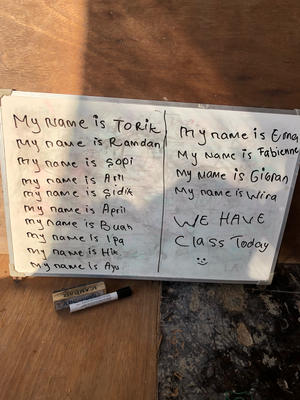 My name is TORIK
My name is Ramdan
My name is Sopi
my name is Aril
my name is Sidik
my name is April
my name is Buah
my name is Ipa
my name is Hik
my name is Ayu
my name is Erna
My Name is Fabienne
My Name is Gibran
My name is Wira
WE HAVE
Class Today